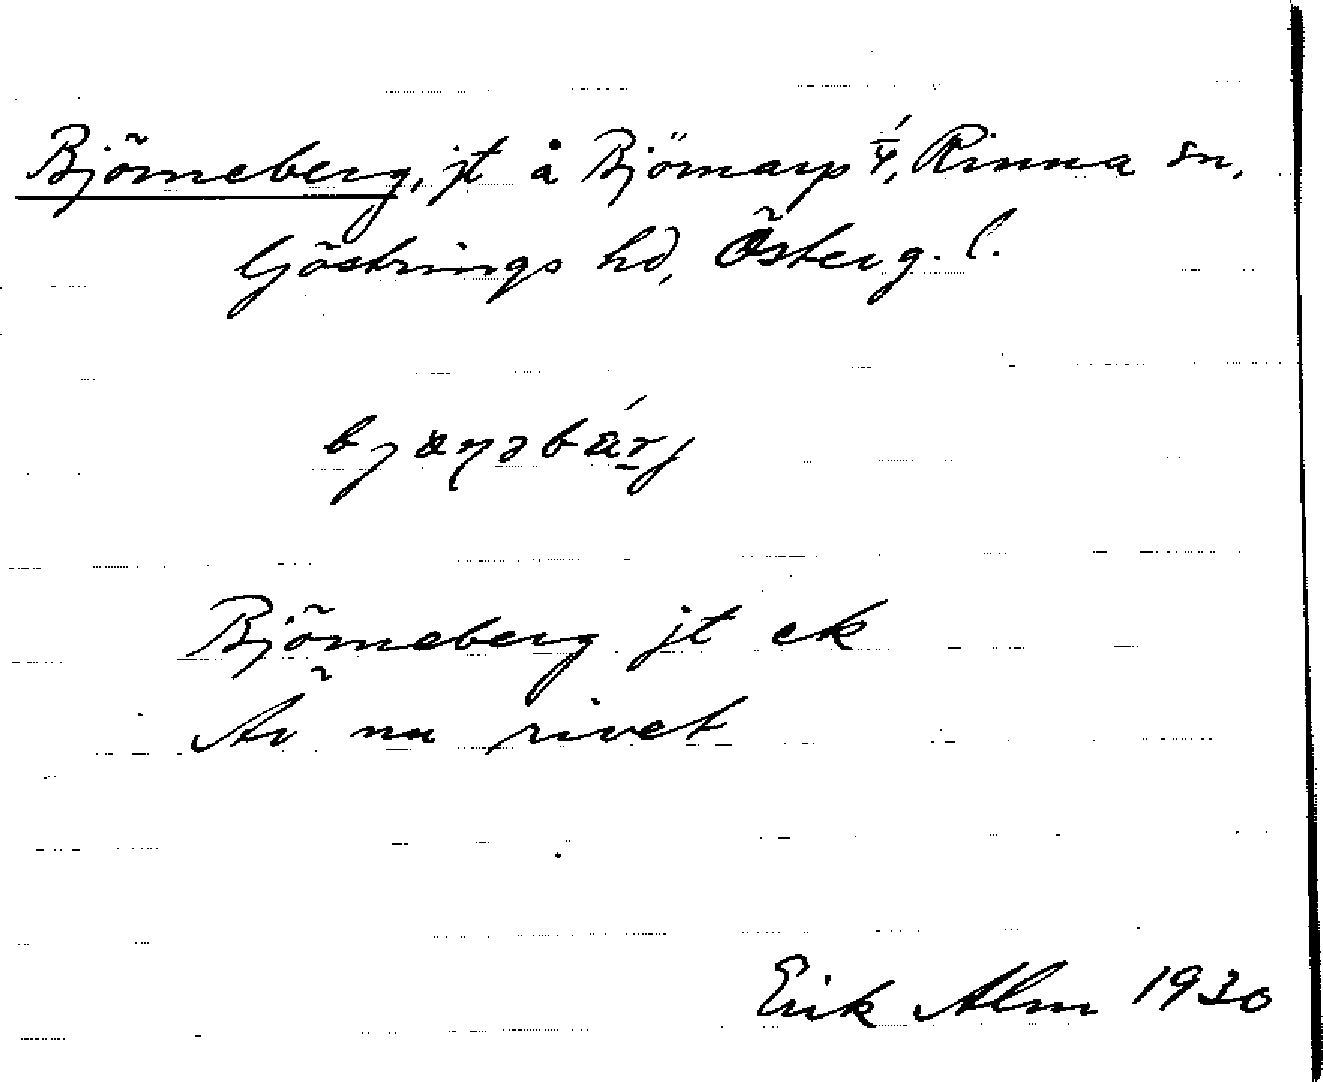 Björneberg, jt å Björnarp 1/4, Rinna sn,
Göstrings hd, Österg. l.
Björneberg jt ek
Är nu rivet
Erik Alm 1930